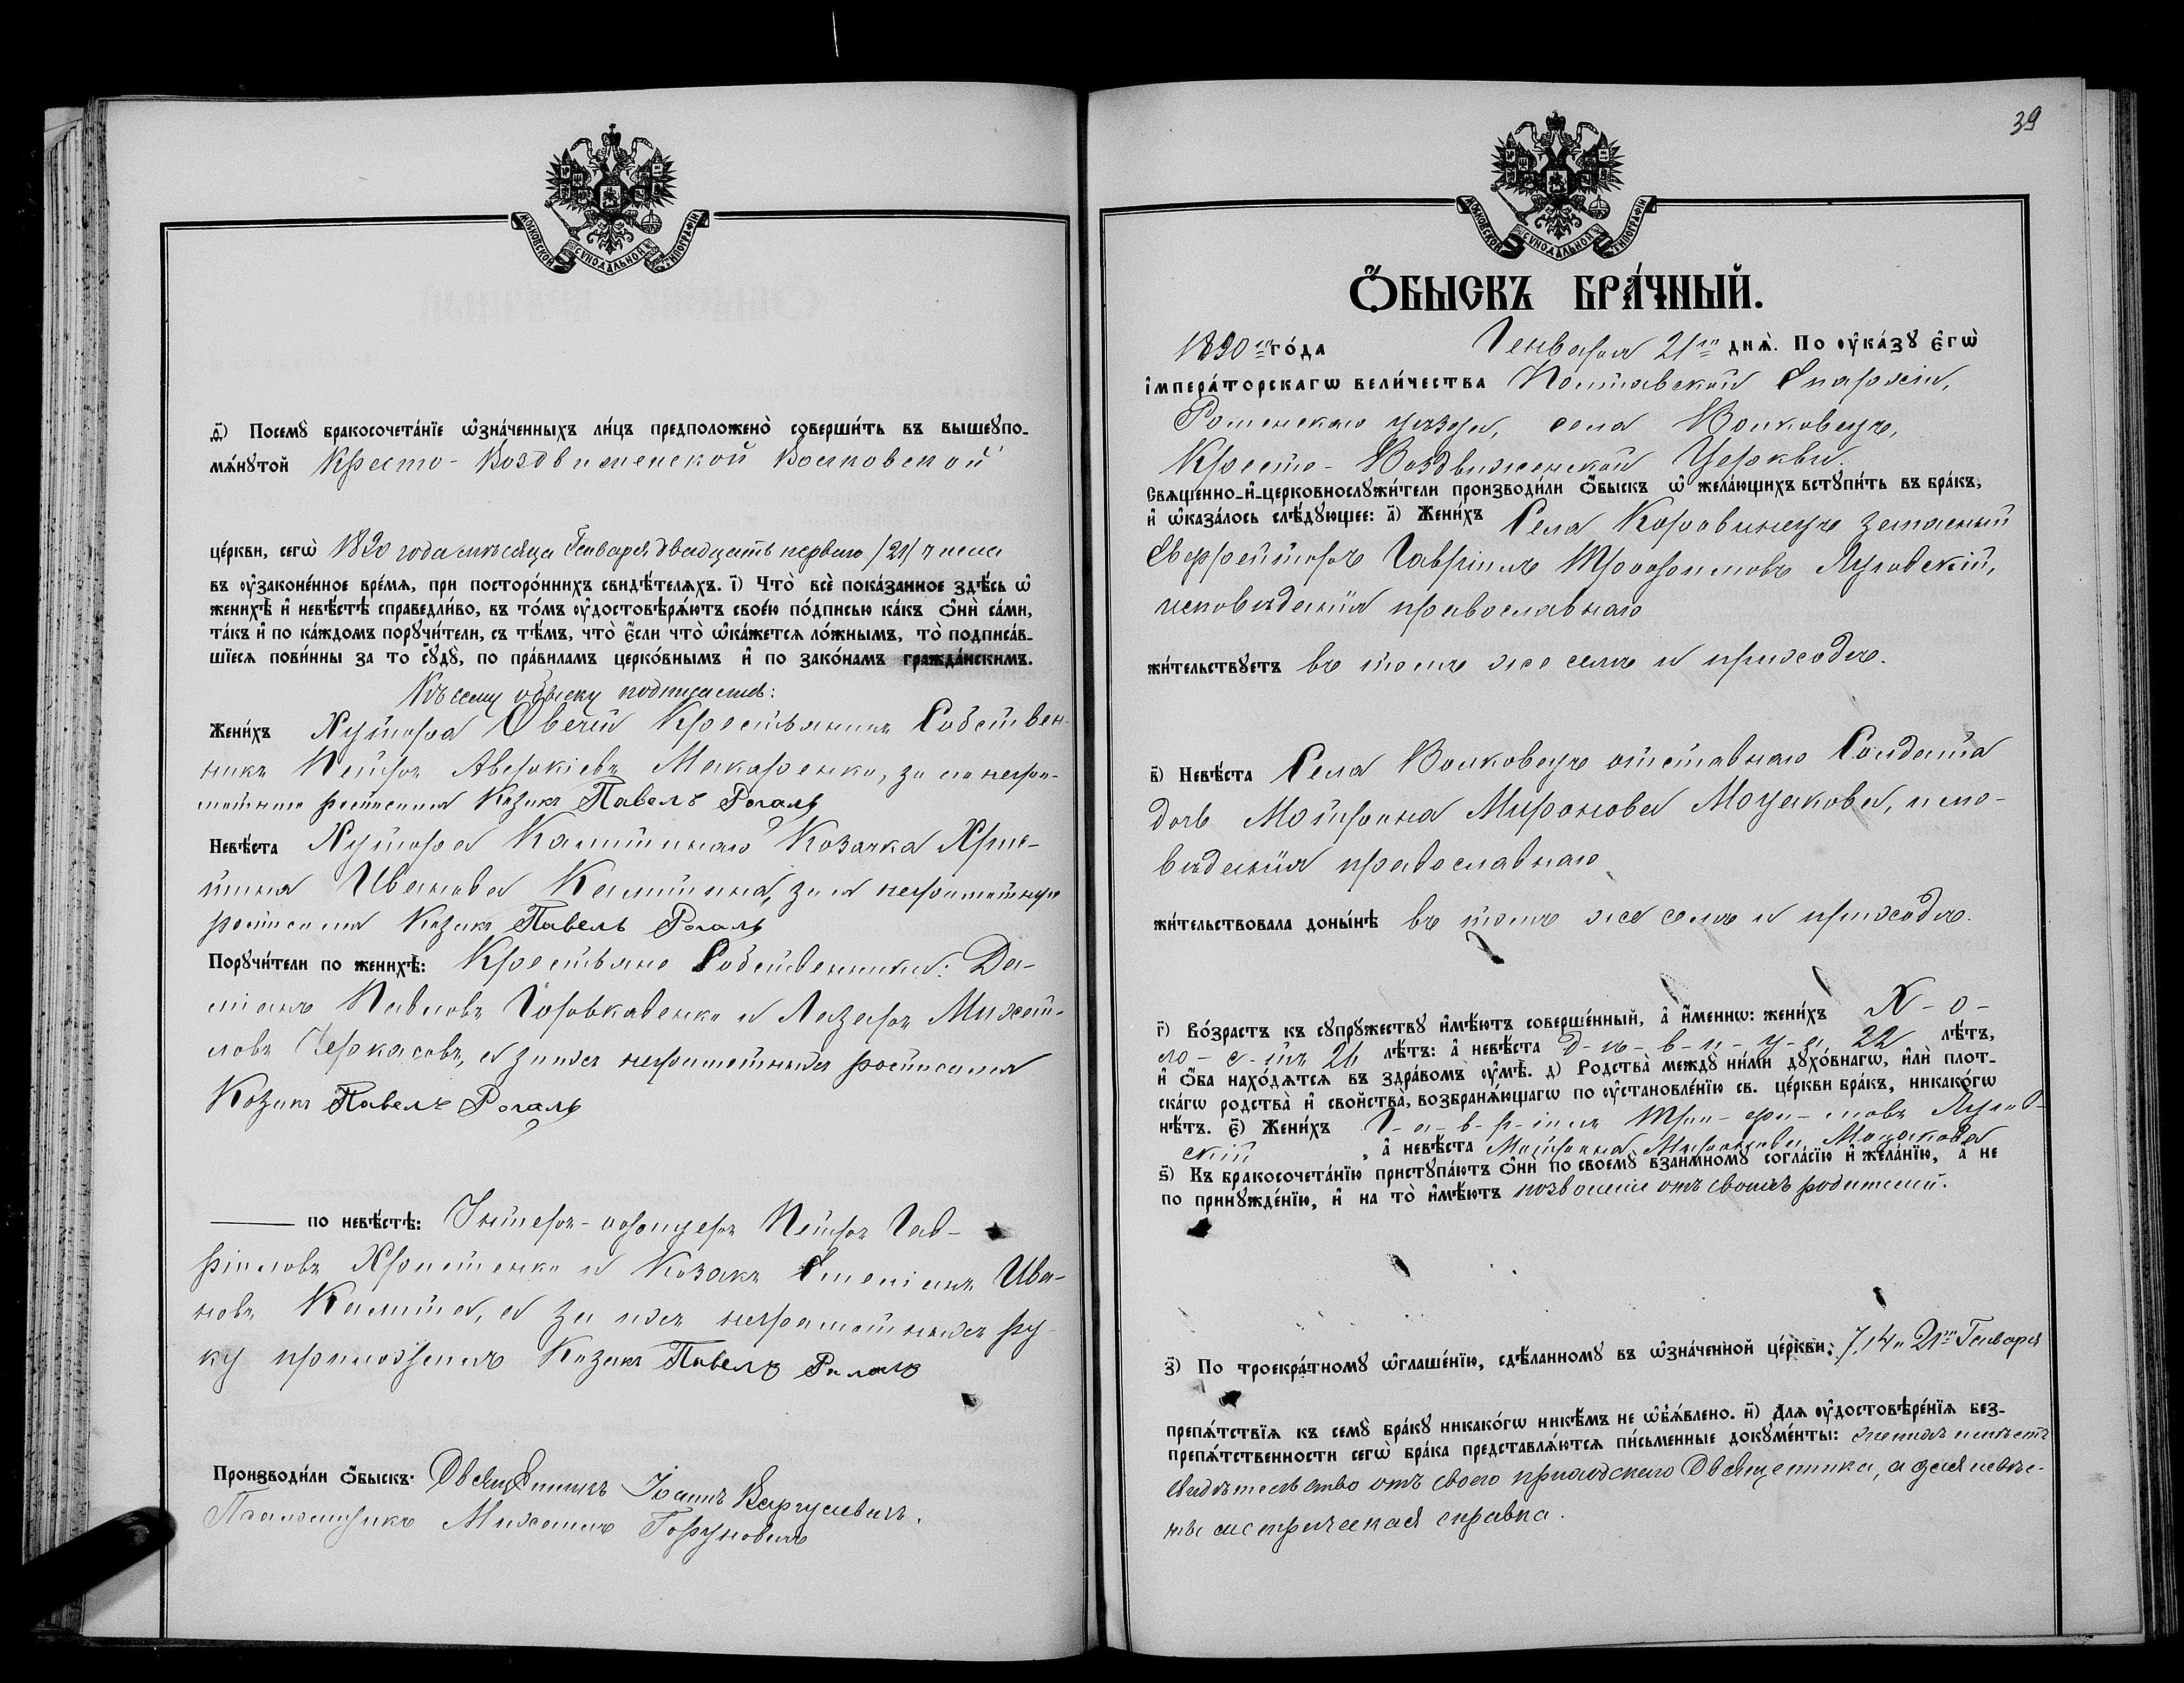 МОСКОВСКОЙ СѴНОДАЛЬНОЙ ТИПОГРАФІИ
д҃і) Посемꙋ бракосочета́нїе ѡ҆зна́ченныхъ ли́цъ предположено̀ соверши́ть въ вышеꙋпо-
мѧ́нꙋтой Кресто-Воздвиженской Волковской
це́ркви, сегѡ̀ 1890 года мѣсяца Генваря двадцать первого /21/ числа
въ ᲂу҆законе́нное вре́мѧ, при посторо́ннихъ свидѣ́телѧхъ. і҃) Что̀ всѐ пока́занное здѣ́сь ѡ҆
женихѣ̀ и҆ невѣ́стѣ справедли́во, въ то́мъ ᲂу҆достовѣрѧ́ютъ свое́ю по́дписью ка́къ ѻ҆нѝ са́ми,
та́къ и҆ по ка́ждомъ порꙋчи́тели, съ тѣ́мъ, что̀ є҆́сли что̀ ѡ҆ка́жетсѧ ло́жнымъ, то̀ подписа́в-
шїесѧ пови́нны за то сꙋдꙋ̀, по пра́виламъ церко́внымъ и҆ по зако́намъ гражда́нскимъ.
Къ сему обыску подписались:
Жени́хъ Хутора Овечій Крестьянинъ Собствен-
никъ Петръ Аверкіевъ Макаренко, за неграм-
отнаго росписался Козакъ Павелъ Рогаль
Невѣ́ста Хутора Калтинаго Козачка Хрис-
тина Иванова Калтина, за неграмотную
росписался Козакъ Павелъ Рогаль
Порꙋчи́тели по женихѣ̀: Крестьяне Собственники: Да-
міанъ Павловъ Горовкаденко и Лазарь Михай-
ловъ Черкасовъ, а за нихъ неграмотныхъ росписался
Козакъ Павелъ Рогаль
по невѣ́стѣ: Унтеръ-офицеръ Петръ Гав-
ріиловъ Христенко и Козакъ Симеонъ Ива-
новъ Калита, а за нихъ неграмотныхъ ру-
ку приложилъ Козакъ Павелъ Рогаль
Производи́ли ѻ҆́быскъ: Священникъ Іоаннъ
Псаломщикъ Михаилъ Горуновичъ
39
МОСКОВСКОЙ СѴНОДАЛЬНОЙ ТИПОГРАФІИ
Ѻ҆́БЫСКЪ БРА́ЧНЫЙ.
1890го го́да Генваря 21го днѧ̀. По ᲂу҆ка́зꙋ є҆гѡ̀
і҆мпера́торскагѡ вели́чества Полтавской Епархіи,
Роменскаго уѣзда, села Волковецъ,
Кресто-Воздвиженской Церкви
Свѧщенно-и҆-церковнослꙋжи́тели производи́ли ѻ҆́быскъ ѡ҆ жела́ющихъ встꙋпи́ть въ бра́къ,
и҆ ѡ҆каза́лось слѣ́дꙋющее: а҃) Жени́хъ Села Коровинецъ запасный
Ефрейторъ Гавріилъ Трофимовъ Луговскій,
исповѣданія православнаго
жи́тельствꙋетъ въ томъ же селѣ и приходѣ.
в҃) Невѣ́ста Села Волковецъ отставнаго Солдата
дочь Матрона Миронова Моцакова, испо-
вѣданія православнаго
жи́тельствовала доны́нѣ въ томъ же селѣ и приходѣ.
г҃) Во́зрастъ къ сꙋпрꙋ́жествꙋ и҆мѣ́ютъ соверше́нный, а҆ и҆́меннѡ: жени́хъ Х-о-
ло-с-тъ 26 лѣ́тъ: а҆ невѣ́ста д-ѣ-в-и-ц-а 22 лѣ́тъ,
и҆ ѻ҆́ба нахо́дѧтсѧ въ здра́вомъ ᲂу҆мѣ̀. д҃) Родства̀ междꙋ̀ ни́ми дꙋхо́внагѡ, и҆лѝ плот-
ска́гѡ родства̀ и҆ сво́йства, возбранѧ́ющагѡ по ᲂу҆становле́нїю св. це́ркви бра́къ, никако́гѡ
нѣ́тъ. є҃) Жени́хъ Г-а-в-р-іилъ Тро-фи-мовъ Лугов-
скій, а҆ невѣ́ста Матрона Миронова Моцакова
ѕ҃) Къ бракосочета́нїю пристꙋпа́ютъ ѻ҆нѝ по своемꙋ̀ взаи́мномꙋ согла́сїю и҆ жела́нїю, а҆ не
по принꙋжде́нїю, и҆ на то̀ и҆мѣ́ютъ позволеніе отъ своихъ родителей.
з҃) По троекра́тномꙋ ѡ҆глаше́нїю, сдѣ́ланномꙋ въ ѡ҆зна́ченной це́ркви: 7, 14 и 21го Генваря
препѧ́тствїѧ къ семꙋ̀ бра́кꙋ никако́гѡ никѣ́мъ не ѡ҆б̾ѧ́влено. и҃) Длѧ ᲂу҆достовѣре́нїѧ без-
препѧ́тственности сегѡ̀ бра́ка представлѧ́ютсѧ пи́сьменные докꙋме́нты: женихъ имѣетъ
свидѣтельство отъ своего приходскаго Священника, а для невѣс-
ты метрическая справка.